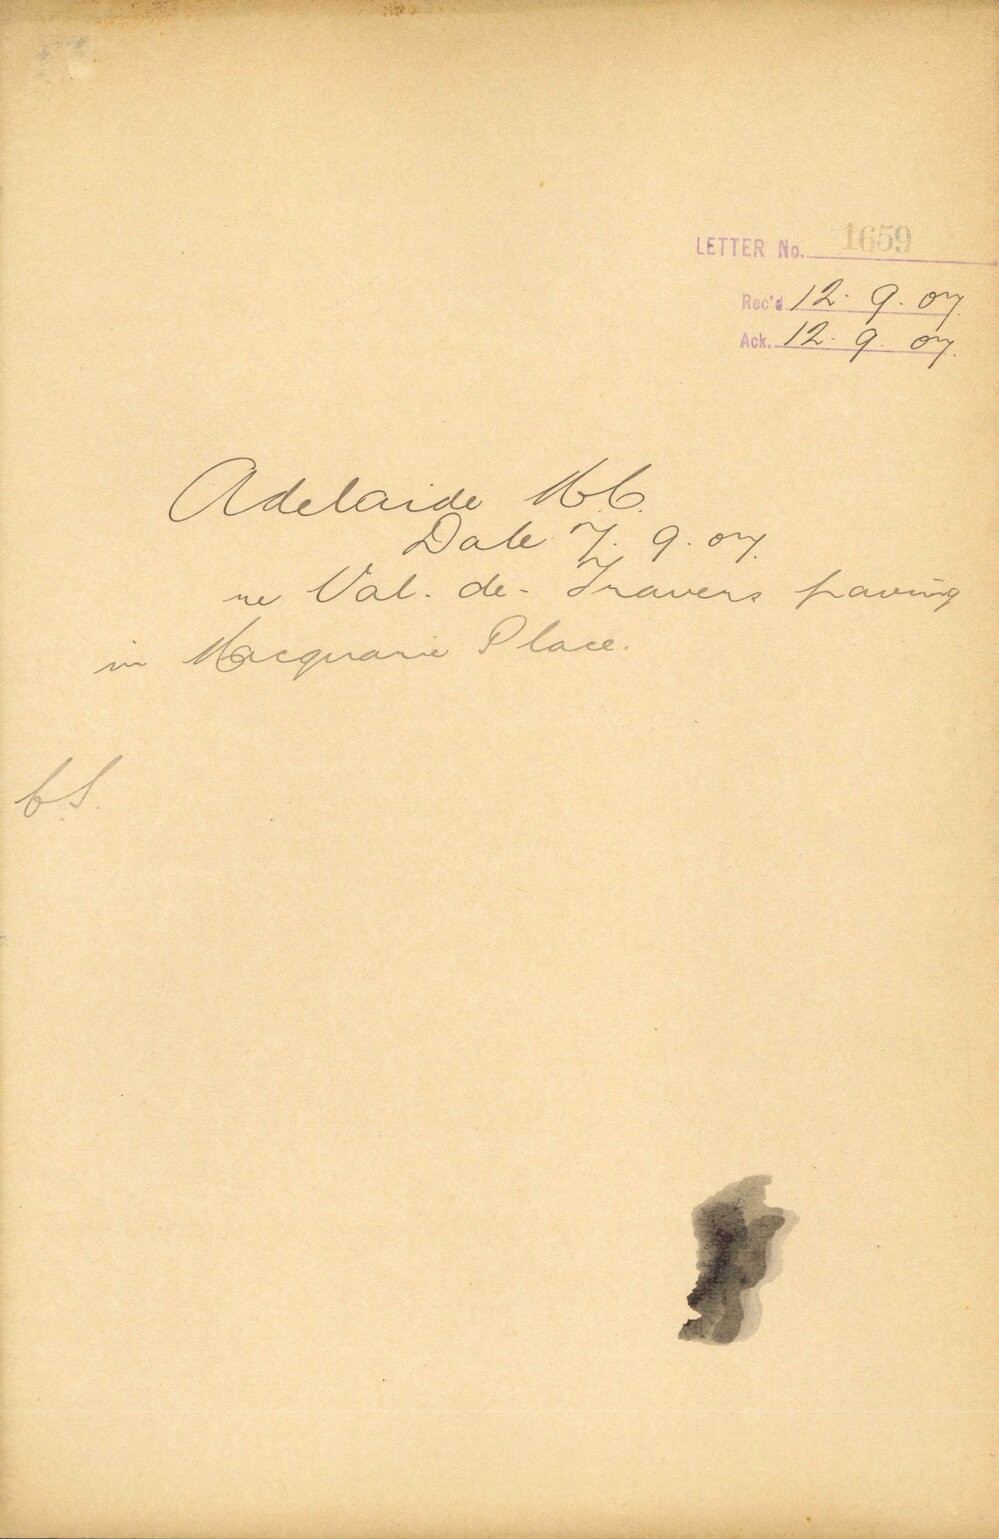 LETTER No. 1659
Rec'd 12. 9. 07.
Ack. 12. 9. 07.
Adelaide M.C.
Date 7. 9. 07.
re Val. de. Travers paving
in Macquarie Place.
C.S.